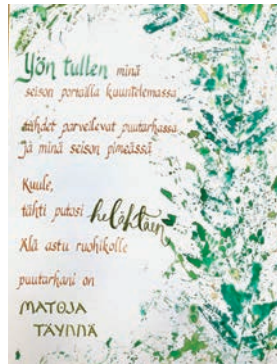 Yön tullen minä
seison portailla kuuntelemassa
tähdet parveilevat puutarhassa
ja minä seison pimeässä
Kuule,
tähti putosi helähtäen
Älä astu ruohikolle
puutarhani on
MATOJA
TÄYNNÄ